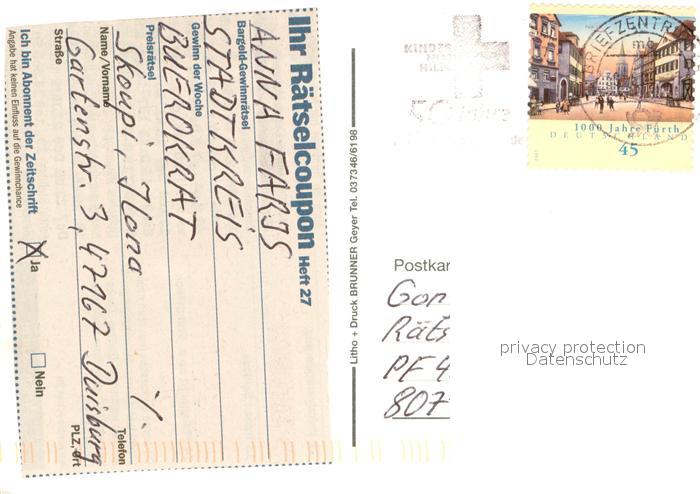 Ihr Rätselcoupon Heft 27
ANNA FARIS
Bargeld-Gewinnrätsel
STADTKREIS
Gewinn der Woche
BUEROKRAT
Preisrätsel
Skoupi, Ilona
Name/Vorname
Telefon
Gartenstr. 3, 47167 Duisburg
Straße
PLZ, Ort
Ich bin Abonnent der Zeitschrift
Ja
Nein
Angabe hat keinen Einfluss auf die Gewinnchance
Litho + Druck BRUNNER Geyer Tel. 037346/6198
BRIEFZENTR
1000 Jahre Fürth
DEUTSCHLAND
45
Postkar
Gon
Räts
PF 4
807
privacy protection
Datenschutz